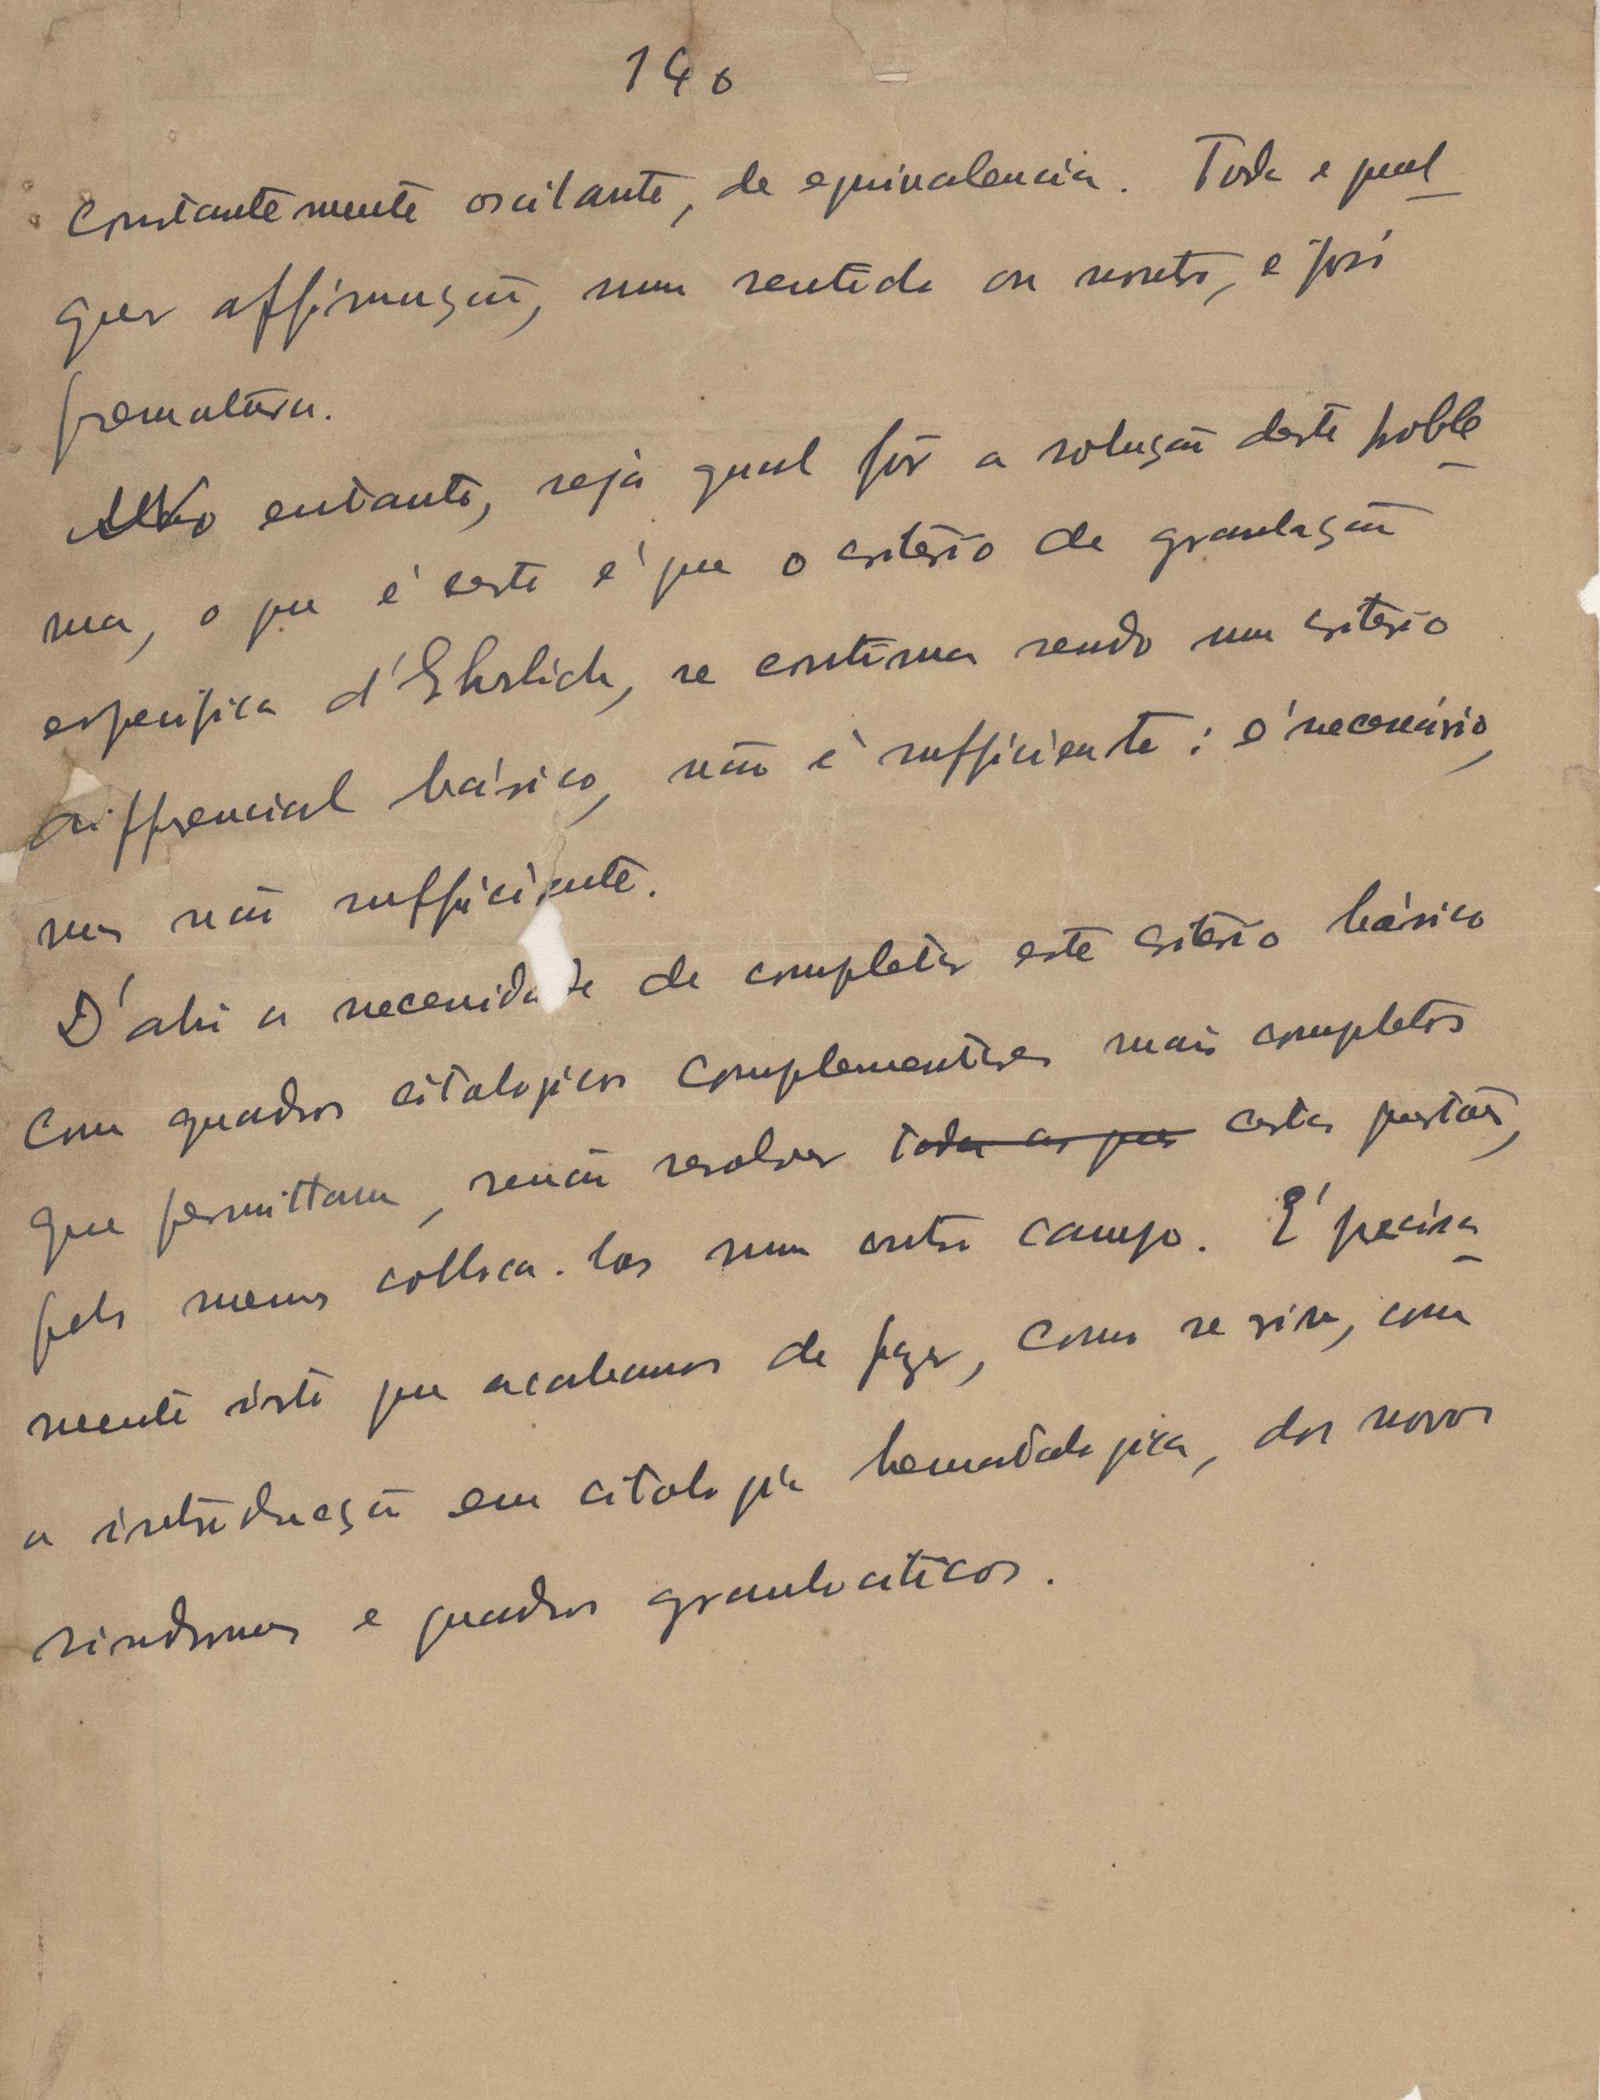 140
constantemente oscilante, de equivalencia. Toda e qual
quer affirmação, num sentido ou noutro, é pois
prematura.
No entanto, seja qual fôr a solução deste proble
ma, o que é certo é que o critério de granulação
especifica d'Ehrlich, se continua sendo um critério
differencial básico, não é sufficiente: é necessário,
mas não sufficiente.
D'ahi a necessidade de completar este critério básico
com quadros citologicos complementares mais completos
que permittam, senão resolver todas as que certas questões,
pelo menos colloca-las num outro campo. É precisa
mente isto que acabamos de fazer, como se viu, com
a introducção em citologia hematologica, dos novos
sindromas e quadros granulociticos.